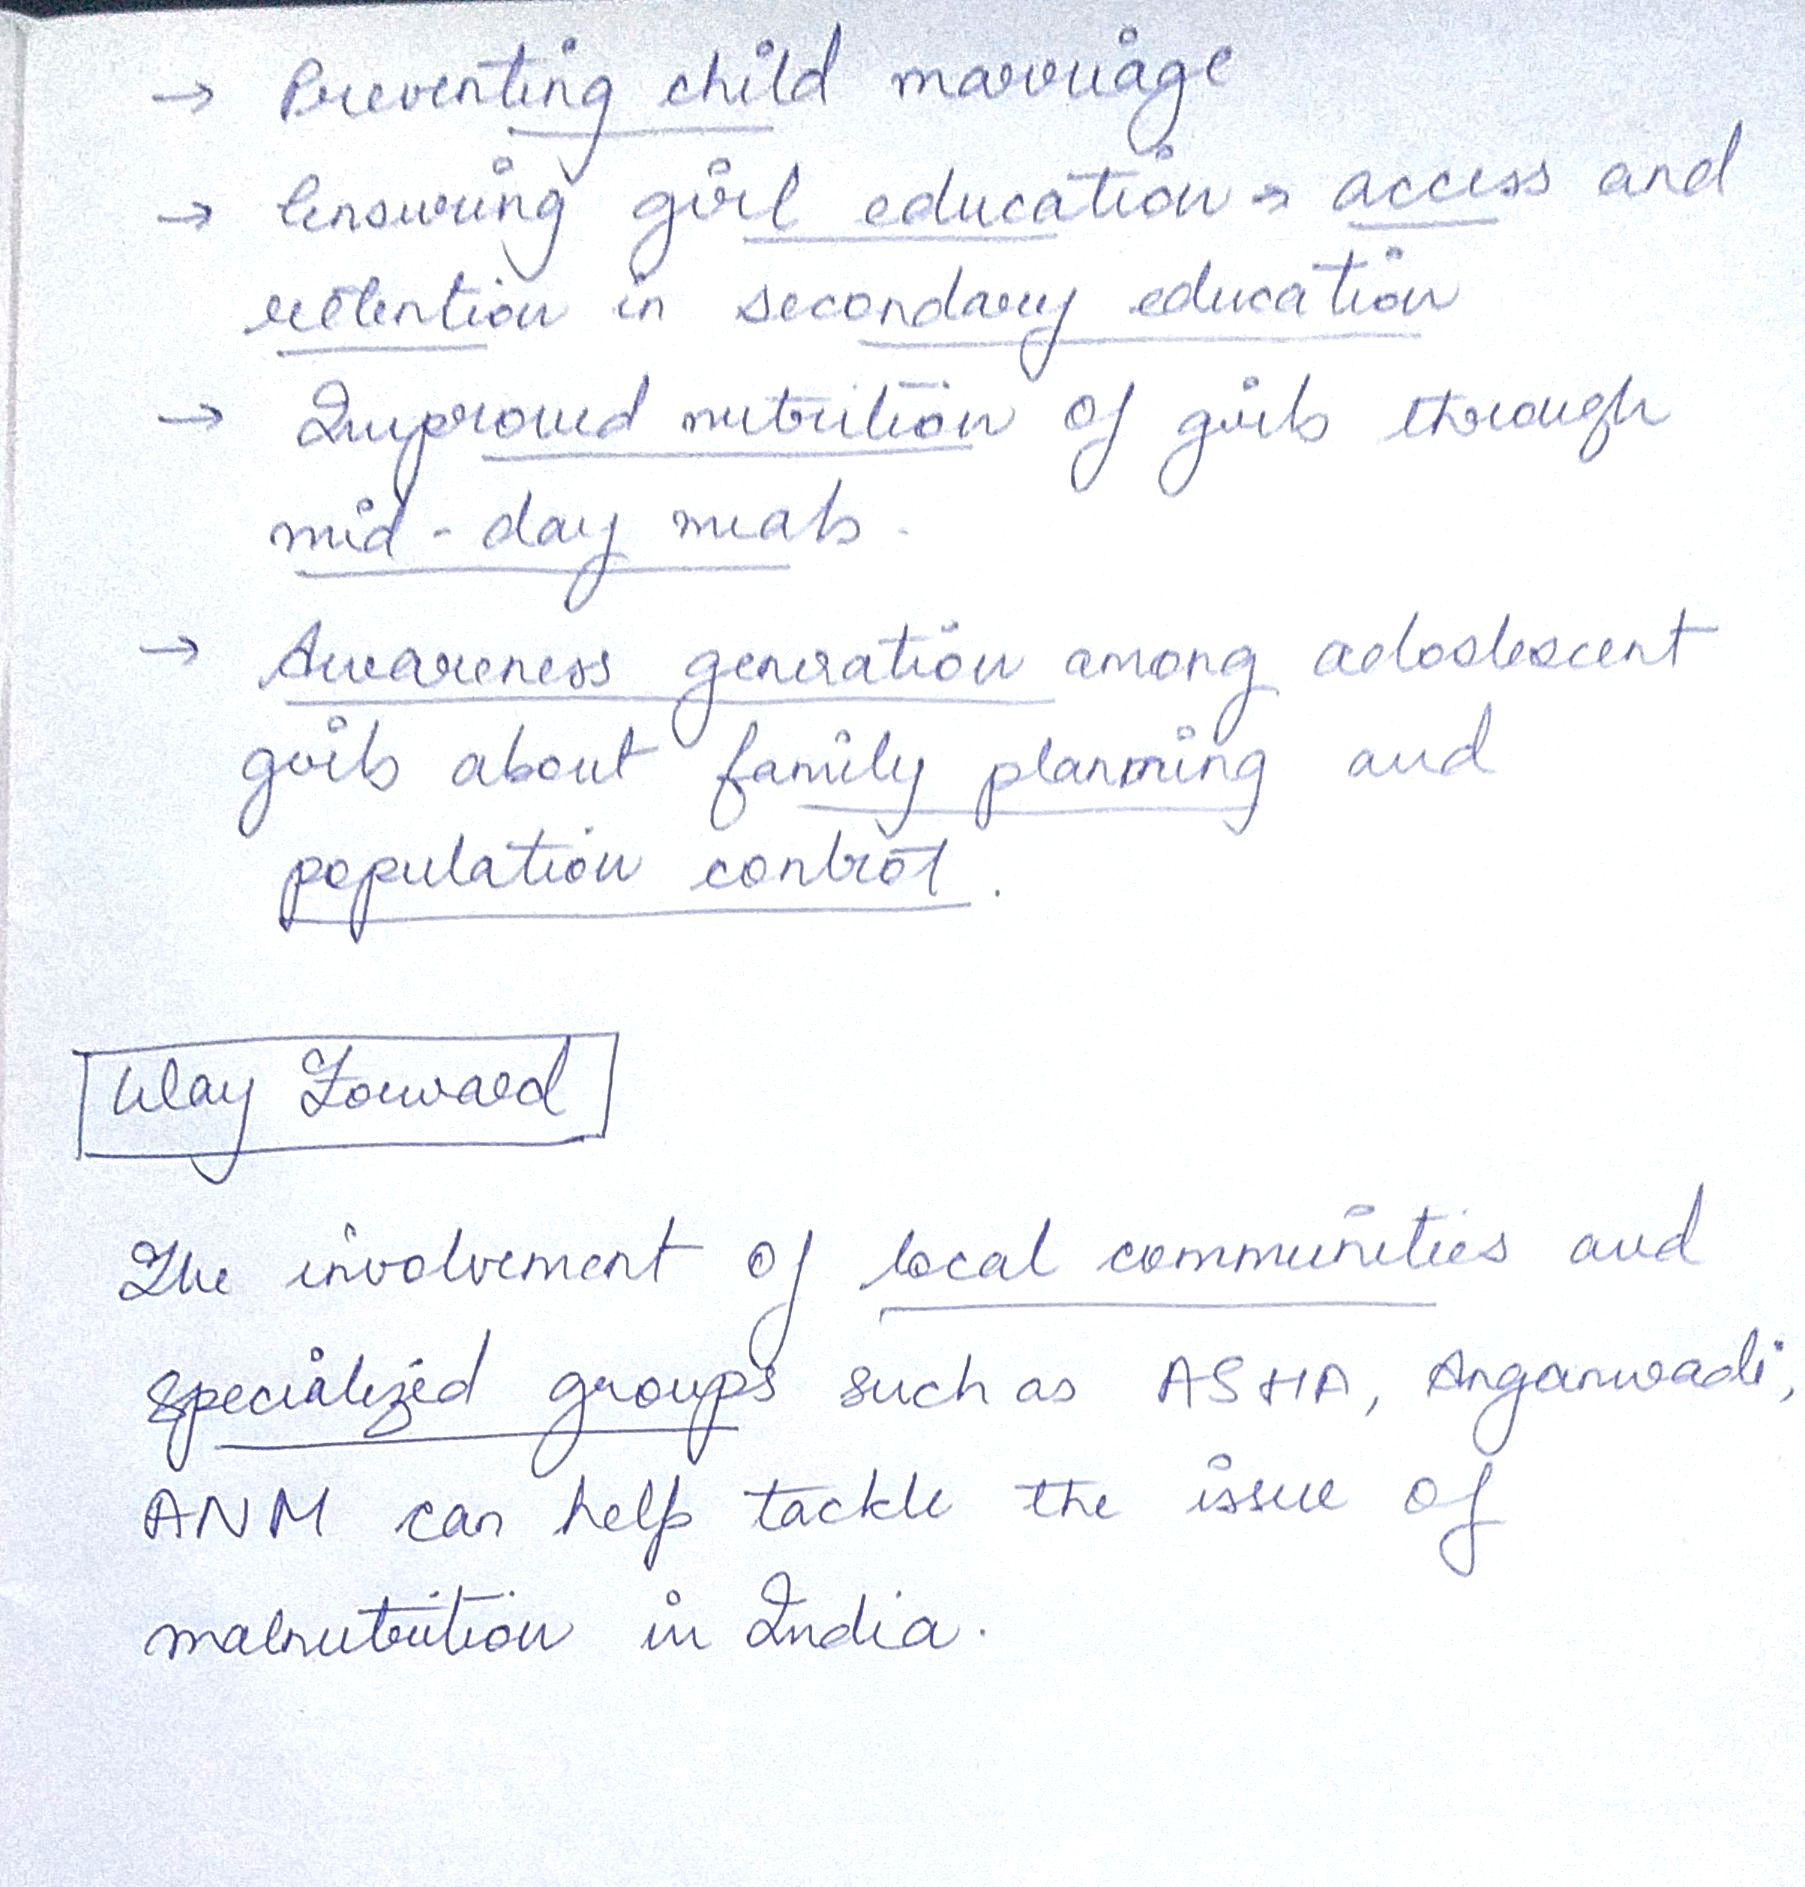 → Preventing child marriage
→ Ensuring girl education → access and
retention in secondary education
→ Improved nutrition of girls through
mid-day meals.
→ Awareness generation among adoslescent
girls about family planning and
population control.
Way Forward
The involvement of local communities and
specialized groups such as ASHA, Anganwadi,
ANM can help tackle the issue of
malnutrition in India.